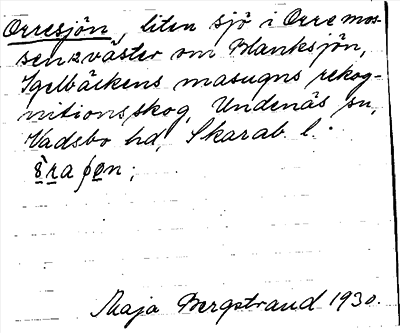 Orresjön, liten sjö i Orremos-
sen z väster om Blanksjön,
Igelbäckens masugns rekog-
nitionsskog, Undenäs sn,
Vadsbo hd, Skarab. l.
Maja Bergstrand 1930.